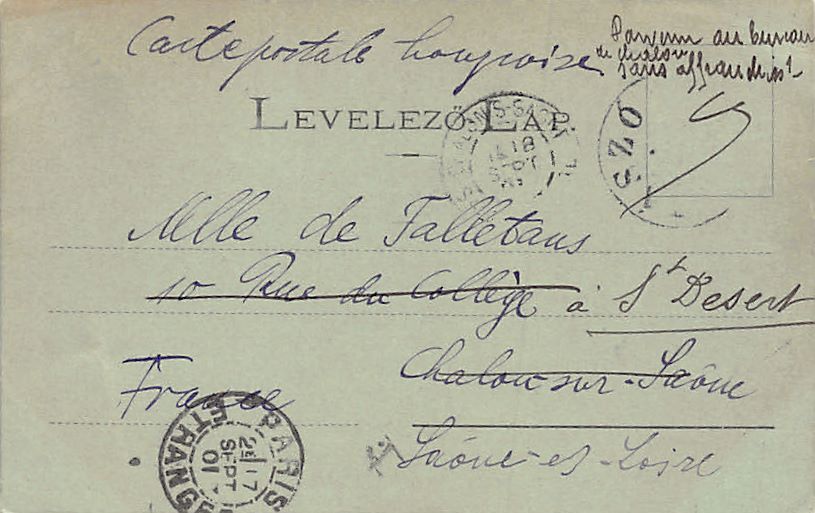 Carte postale hongroise
Parvenu au bureau
de Chalon
sans affranchist
LEVELEZŐ-LAP.
CHALON-S-SAONE
18
SEPT
SZO
Mlle de Falletans
10 Rue du Collège à St Desert
Chalon-sur-Saône
France
Saône-et-Loire
PARIS
ETRANGER
17
SEPT
01